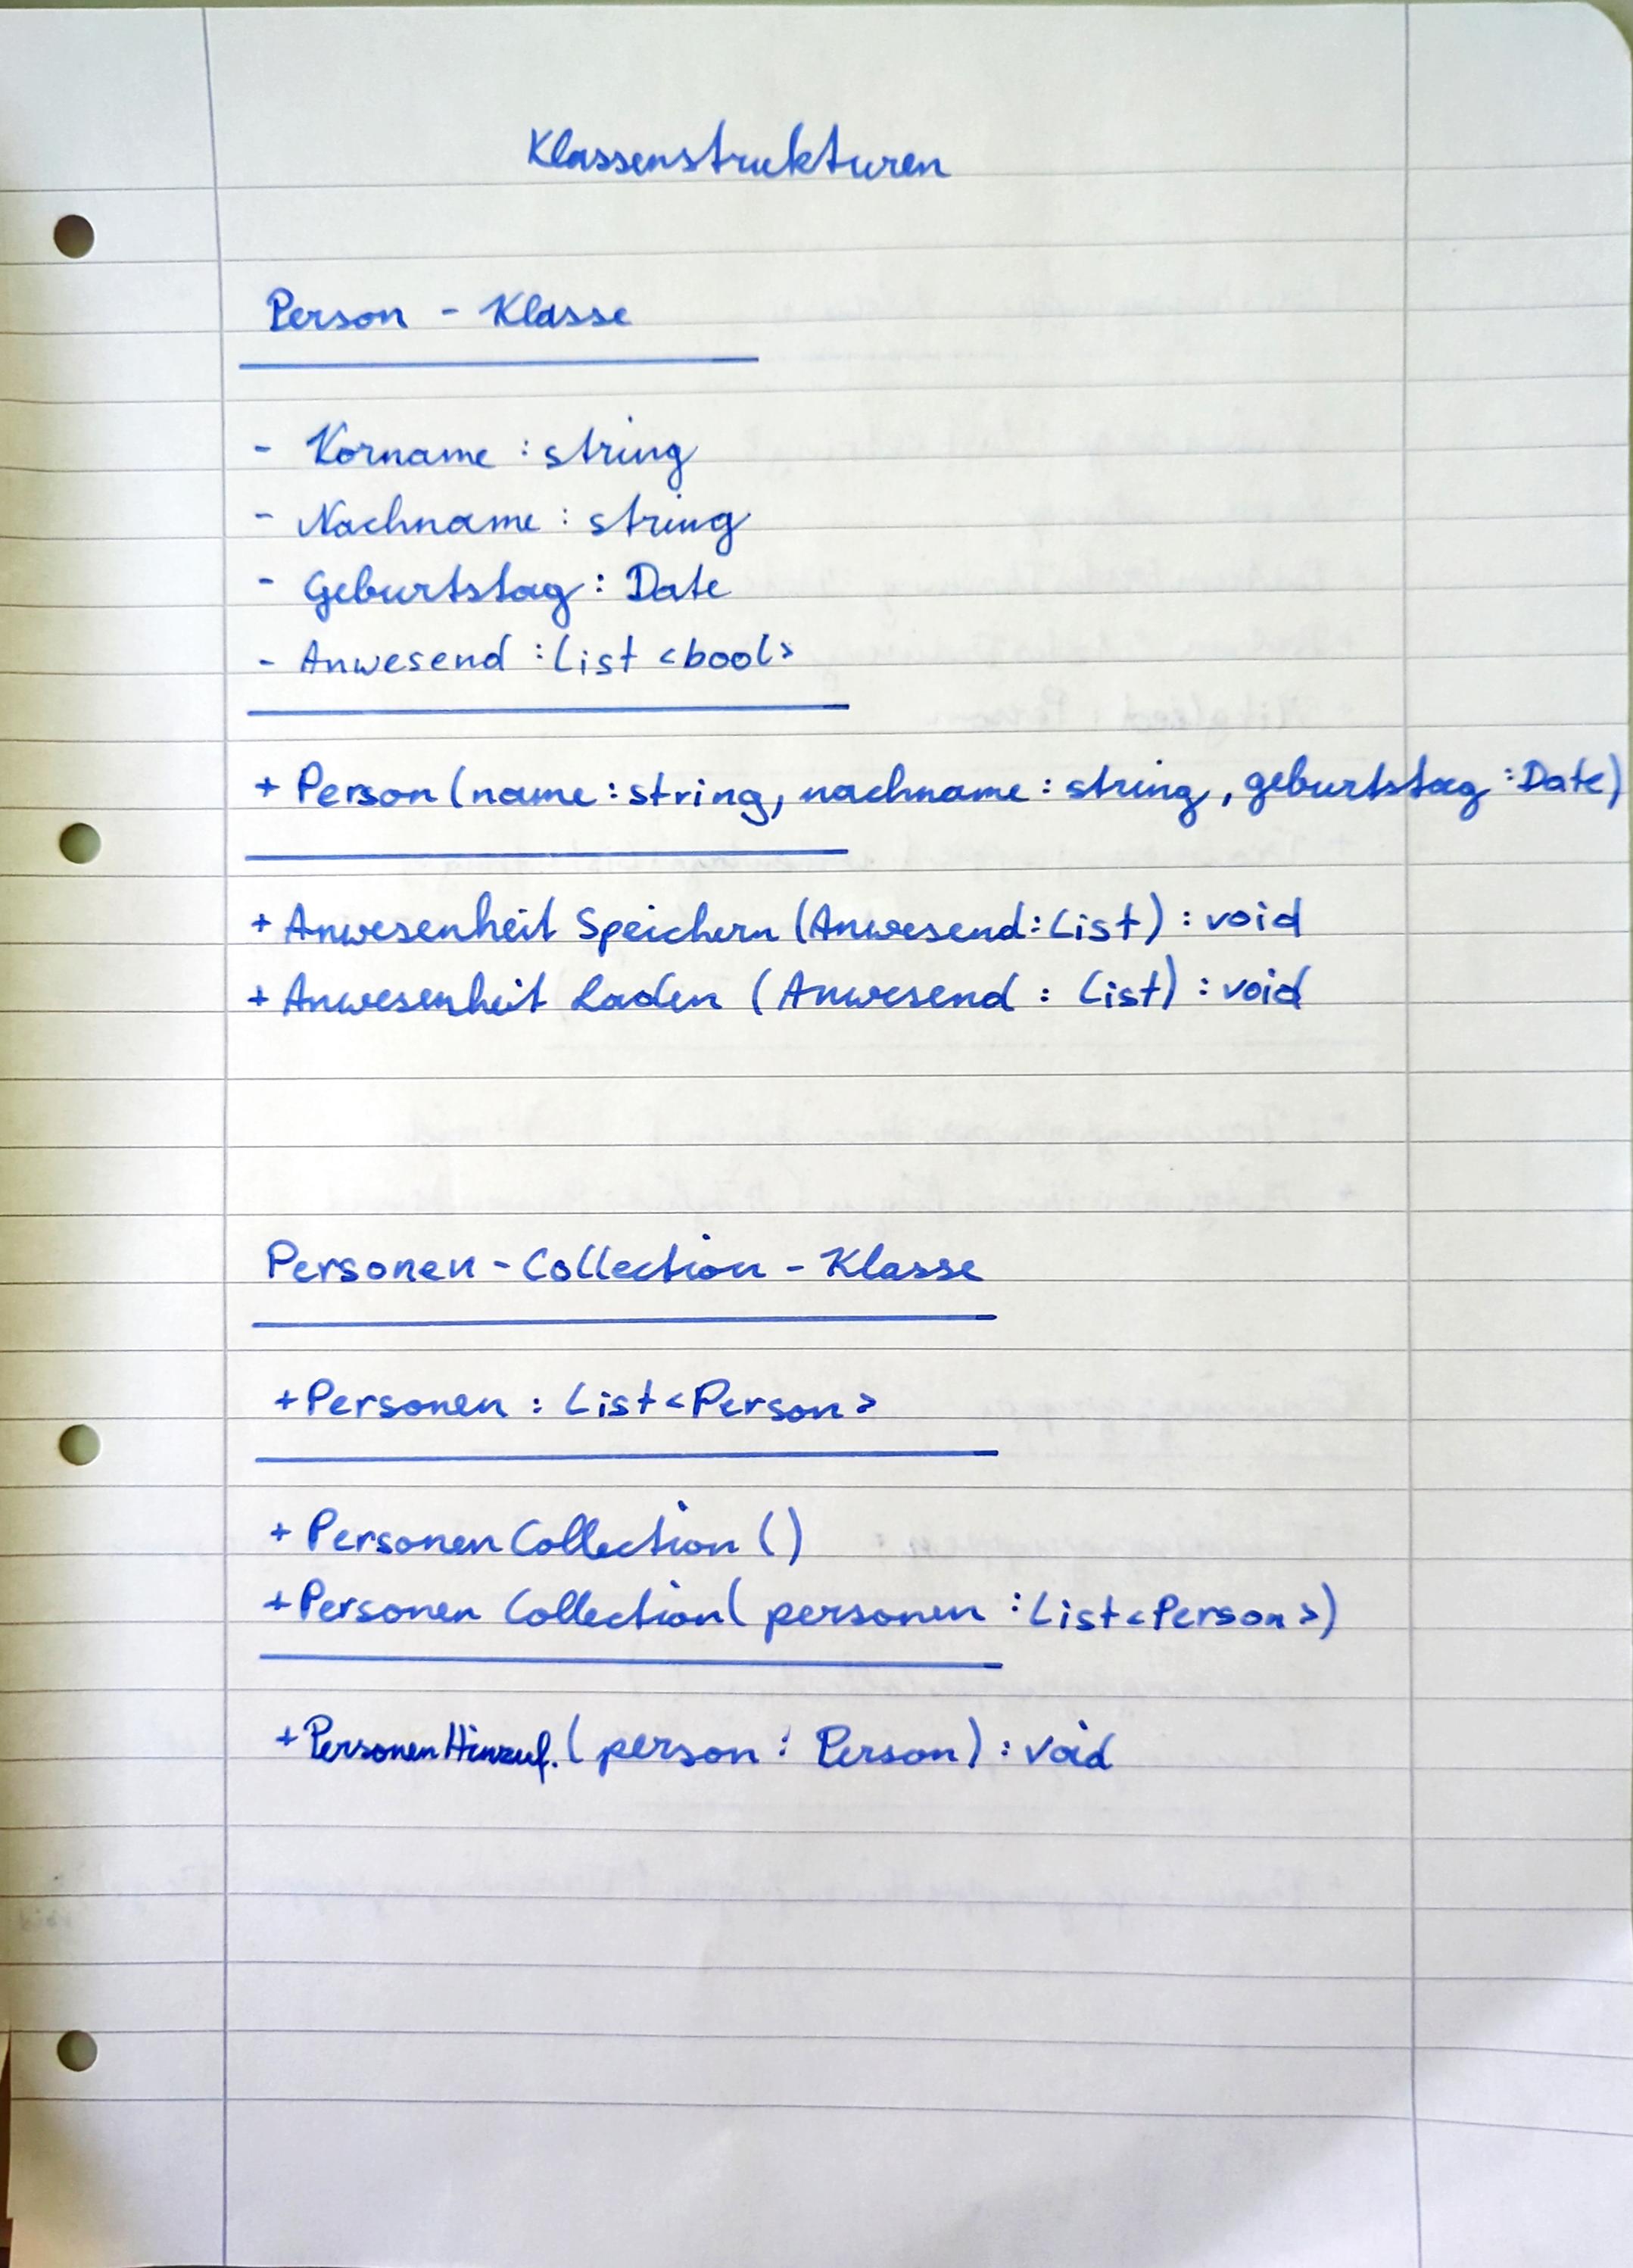 Klassenstrukturen
Person - Klasse
- Vorname : string
- Nachname : string
- Geburtstag : Date
- Anwesend : List <bool>
+ Person (name : string, nachname : string, geburtstag : Date)
+ Anwesenheit Speichern (Anwesend : List) : void
+ Anwesenheit Laden (Anwesend : List) : void
Personen - Collection - Klasse
+ Personen : List <Person>
+ Personen Collection ()
+ Personen Collection ( personen : List <Person>)
+ Personen Hinzuf. ( person : Person) : void